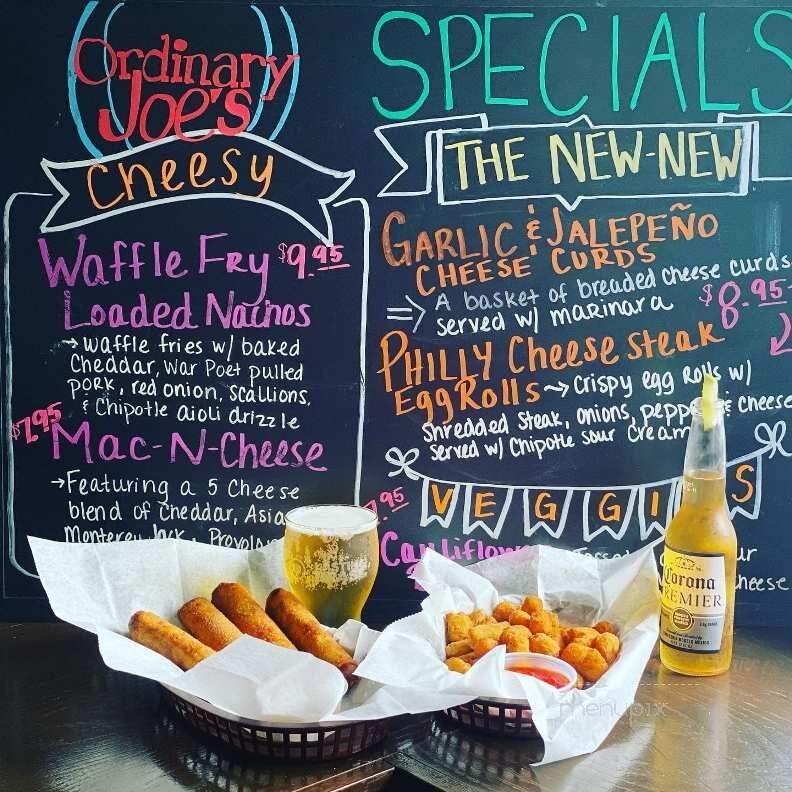 Ordinary
Joe's
Cheesy
Waffle Fry $9.95
Loaded Nachos
→ waffle fries w/ baked
Cheddar, War Poet pulled
pork, red onion, scallions,
& Chipotle aioli drizzle
$7.95
Mac-N-Cheese
→ Featuring a 5 Cheese
blend of Cheddar, Asia
Monterey Jack, Provolon
SPECIALS
THE NEW-NEW
GARLIC & JALEPEÑO
CHEESE CURDS
⇒ A basket of breaded cheese curds
served w/ marinara $8.95
PHILLY Cheese steak
Egg Rolls → Crispy egg Rolls w/
Shredded steak, onions, pepp & cheese
served w/ Chipotle sour cream
VEGGIES
.95
Cauliflow
ur
cheese
Corona
PREMIER
menupix